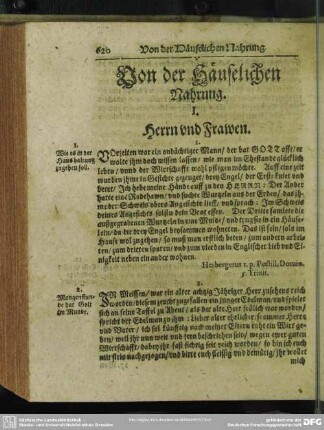 620 Von der Häuselichen Nahrung.
Von der Häuselichen
Nahrung.
I.
Herrn vnd Frawen.
1.
Wie es in der
Haus haltung
zugehen soll.
VOrzeiten war ein andächtiger Mann/ der bat GOTT offt/ er
wolte jhm doch wissen lassen/ wie man im Ehestande glücklich
leben/ vnnd der Wirtschafft wohl pflegen möchte. Auff eine zeit
wurden jhme im Gesichte gezeiget/ drey Engel/ der Erste kniet vnd
betet/ Ich hebe meine Hände auff zu den HERRN: Der Ander
hatte eine Radehawn/ vnd suchte Wurtzeln in der Erden/ das
jhme der Schweis vbers Angesichte lieff/ vnd sprach: Im Schweis
deines Angesichts soltu dein Brot essen. Der Dritte samlete die
außgegrabenen Wurtzeln in eine Mulde/ vnd trugs in ein Häuse-
lein/ da die drey Engel beysammen wohneten. Das ist sein/ sols im
Hause wol zugehen/ so muß man erstlich beten/ zum andern arbei-
ten/ zum dritten sparen/ vnd zum vierten in Englischer lieb vnd Ei-
nigkeit neben einander wohnen.
Herbergerus 1. p. Postill. Domin.
5. Trinit.
2.
Morgenstun-
de hat Golt
im Munde.
IN Meissen/ war ein alter achtzig Jähriger Herr zusehens reich
worden/ diesem zeucht zugefallen ein junger Edelman/ vnd spielet
sich an seine Taffel zu Abend/ als der alte Hort frölich war worden/
spricht der Edelman zu jhm: Lieber alter ehrlicher/ frommer Herr
vnd Vater/ ich sol künfftig nach meiner Eltern ruhe ein Wirt ge-
ben/ weil jhr nun weit vnd breit beschrieen seid/ wegen ewer guten
Wirtschafft/ dabey jhr fast sichtig seid reich worden/ so bin ich euch
mit fleis nachgezogen/ vnd bitte euch fleissig vnd demütig/ jhr wollet
mich